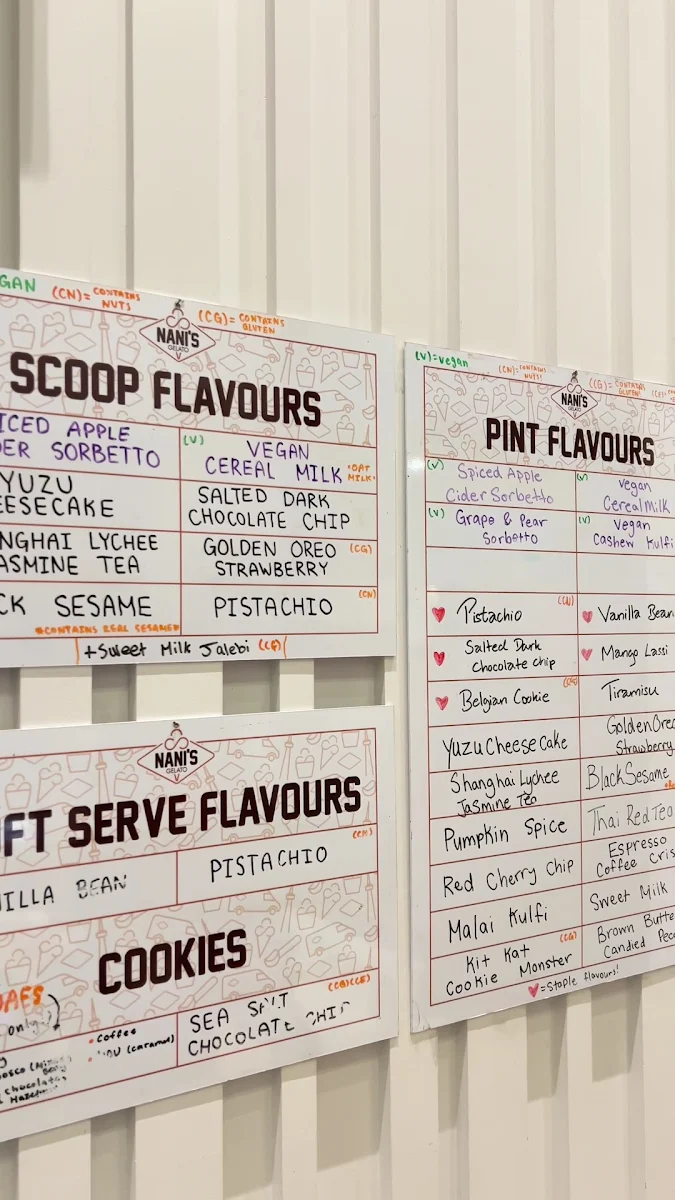 GAN (CN)= CONTAINS NUTS (CG)= CONTAINS GLUTEN
NANI'S
GELATO
SCOOP FLAVOURS
ICED APPLE
DER SORBETTO
(V) VEGAN
CEREAL MILK •OAT MILK•
YUZU
EESECAKE
SALTED DARK
CHOCOLATE CHIP
NGHAI LYCHEE
ASMINE TEA
GOLDEN OREO (CG)
STRAWBERRY
CK SESAME
*CONTAINS REAL SESAME*
PISTACHIO (CN)
+Sweet Milk Jalebi (CG)
NANI'S
GELATO
FT SERVE FLAVOURS
ILLA BEAN
PISTACHIO (CN)
COOKIES
only
• Coffee
(caramel)
chocolate
(CG)(CE)
SEA SALT
CHOCOLATE CHIP
(V)=vegan (CN)= CONTAINS NUTS! (CG)= CONTAINS GLUTEN!
NANI'S
GELATO
PINT FLAVOURS
(V) Spiced Apple
Cider Sorbetto
(V) vegan
Cereal Milk
(V) Grape & Pear
Sorbetto
(V) vegan
Cashew Kulfi
♥ Pistachio (CN)
♥ Vanilla Bean
♥ Salted Dark
chocolate chip
♥ Mango Lassi
♥ Belgian Cookie (CG)
Tiramisu
Yuzu Cheese Cake
Golden Oreo
Strawberry
Shanghai Lychee
Jasmine Tea
Black Sesame
Pumpkin Spice
Thai Red Tea
Red Cherry Chip
Espresso
Coffee Cris
Malai Kulfi
Sweet Milk
Kit Kat (CG)
Cookie Monster
Brown Butte
Candied Pec
♥=Staple flavours!